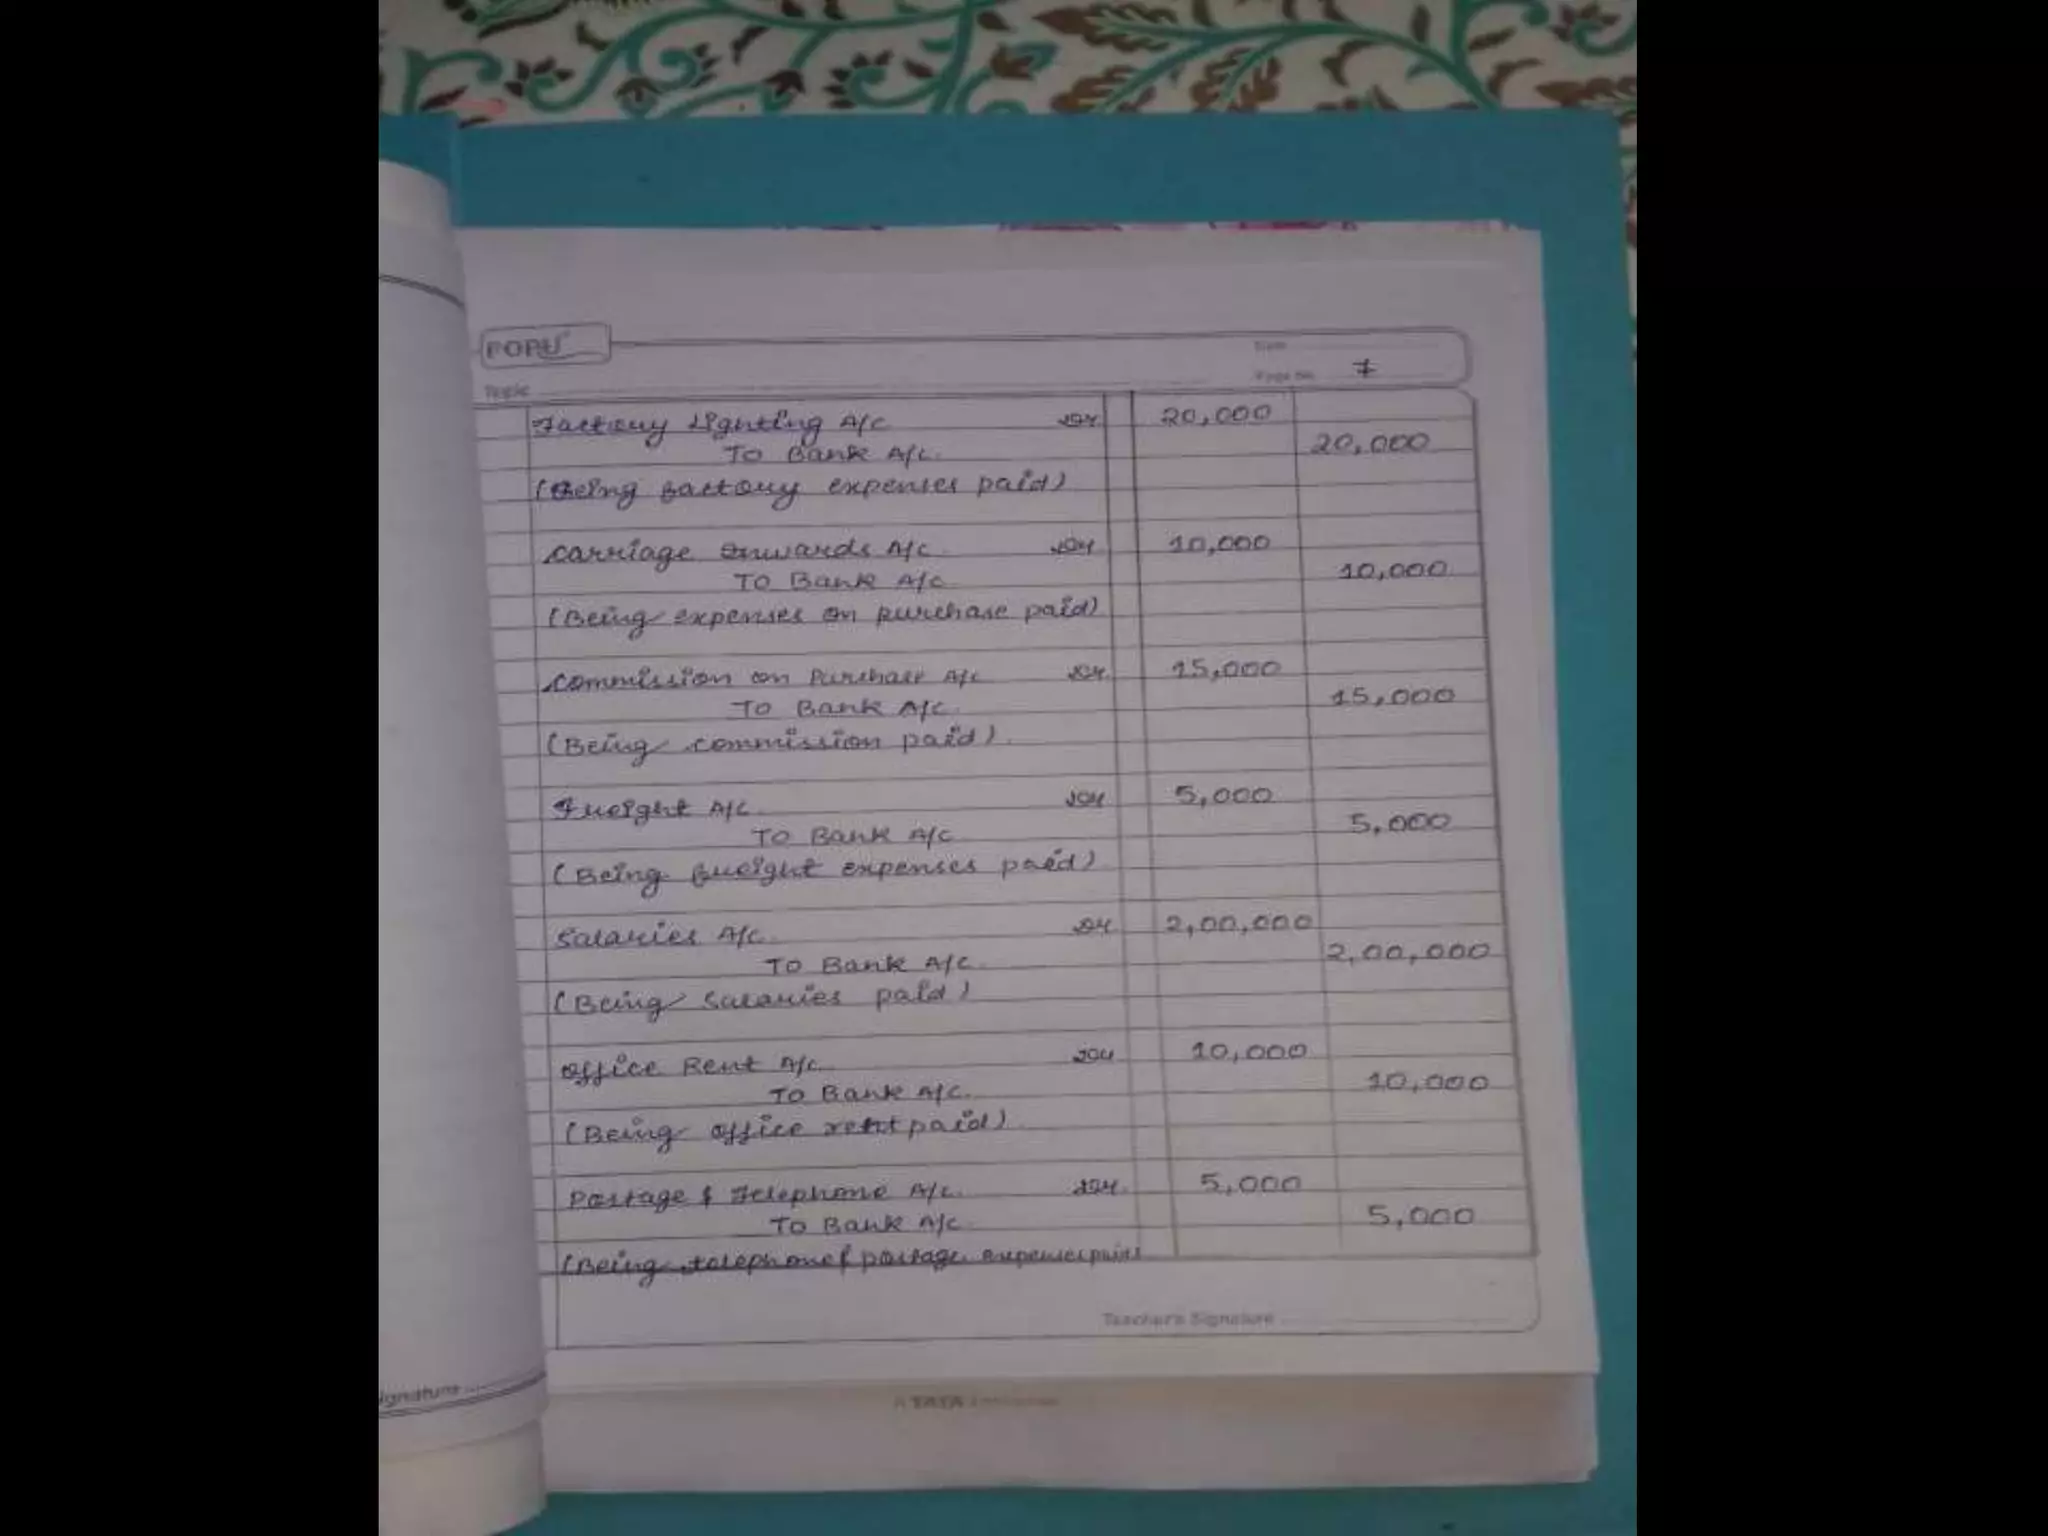 Date
Page No. 7
Topic
Factory Lighting A/c Dr 20,000
To Bank A/c. 20,000
(Being factory expenses paid)
Carriage Inwards A/c Dr 10,000
To Bank A/c 10,000
(Being expenses on purchase paid)
Commission on Purchase A/c Dr 15,000
To Bank A/c. 15,000
(Being commission paid).
Freight A/c. Dr 5,000
To Bank A/c 5,000
(Being freight expenses paid)
Salaries A/c. Dr 2,00,000
To Bank A/c. 2,00,000
(Being Salaries paid)
Office Rent A/c. Dr 10,000
To Bank A/c. 10,000
(Being office rent paid)
Postage & Telephone A/c. Dr. 5,000
To Bank A/c. 5,000
(Being telephone & postage expenses paid
Teacher's Signature
ignature
A TATA